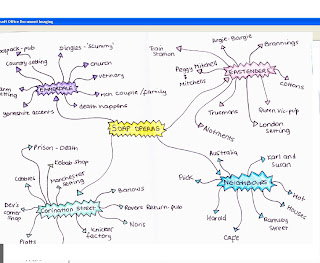 soft Office Document Imaging
Woolpack-pub
Dingles-'scummy'
country setting
church
vetinary
EMMERDALE
rich couple/family
farm
setting
death happens
yorkshire accents
Train
Station
Argie-Bargie
Brannings
Peggy Mitchell
Mitchells
EASTENDERS
Cottons
Queen Vic-pub
London
Setting
Truemans
SOAP OPERAS
Prison - Death
Kebab shop
Manchester
setting
Dev's
corner
shop
Barlows
Corination Street
Rovers Return-pub
Knicker
factory
Platts
Australia
Karl and
Susan
NEIGHBOURS
Hot
Houses
Ramsay
Street
Cafe
Harold